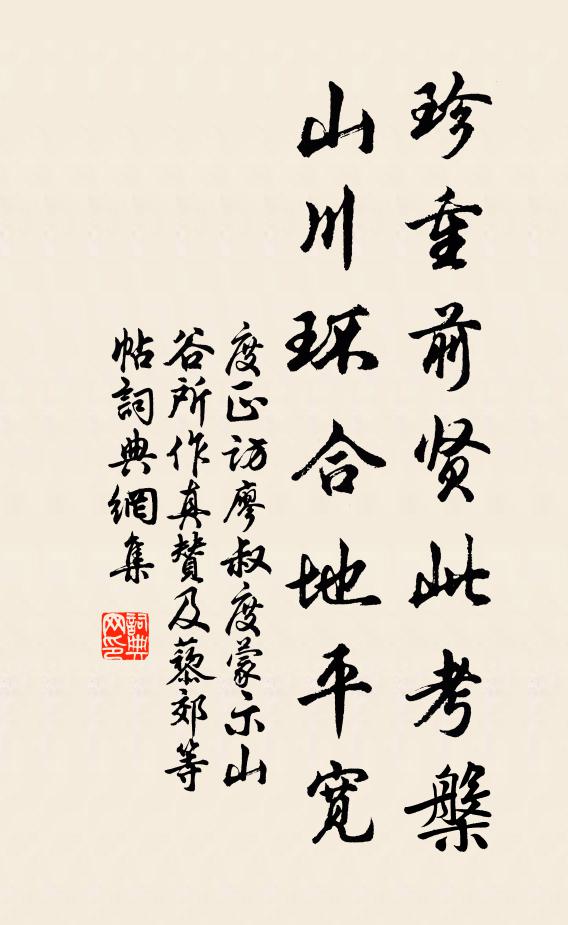 珍重前贤此考槃
山川环合地平宽
度正访廖叔度蒙示山
谷所作真贊及藜郊等
帖詞典網集
詞典网印